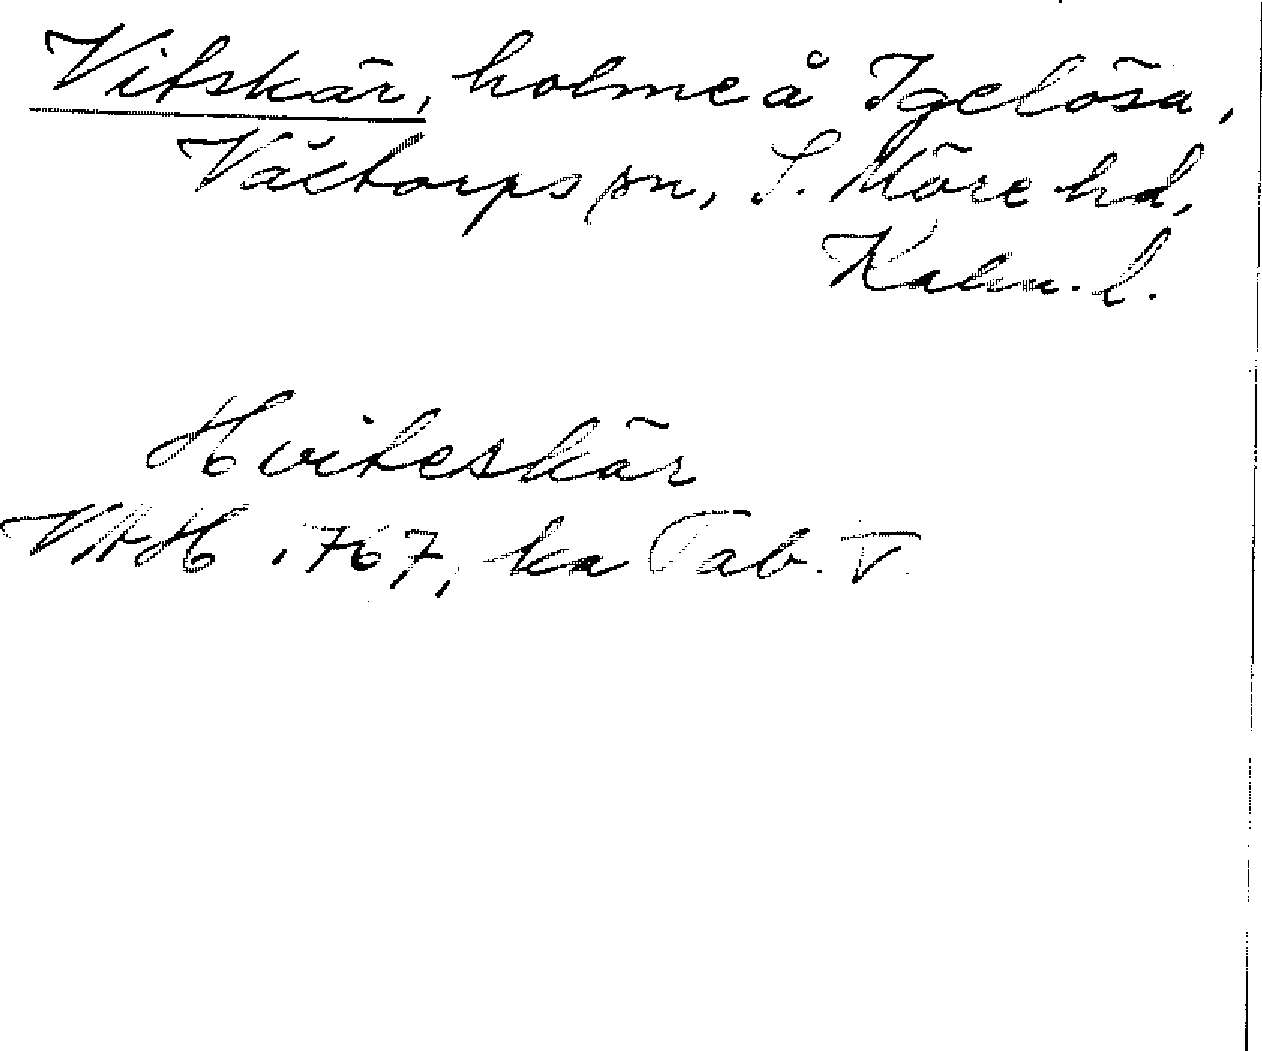 Vitskär, holme å Igelösa,
Våxtorps sn, S. Möre hd,
Kalm. l.
Hviteskär
VAH 1767, ka Tab. V.